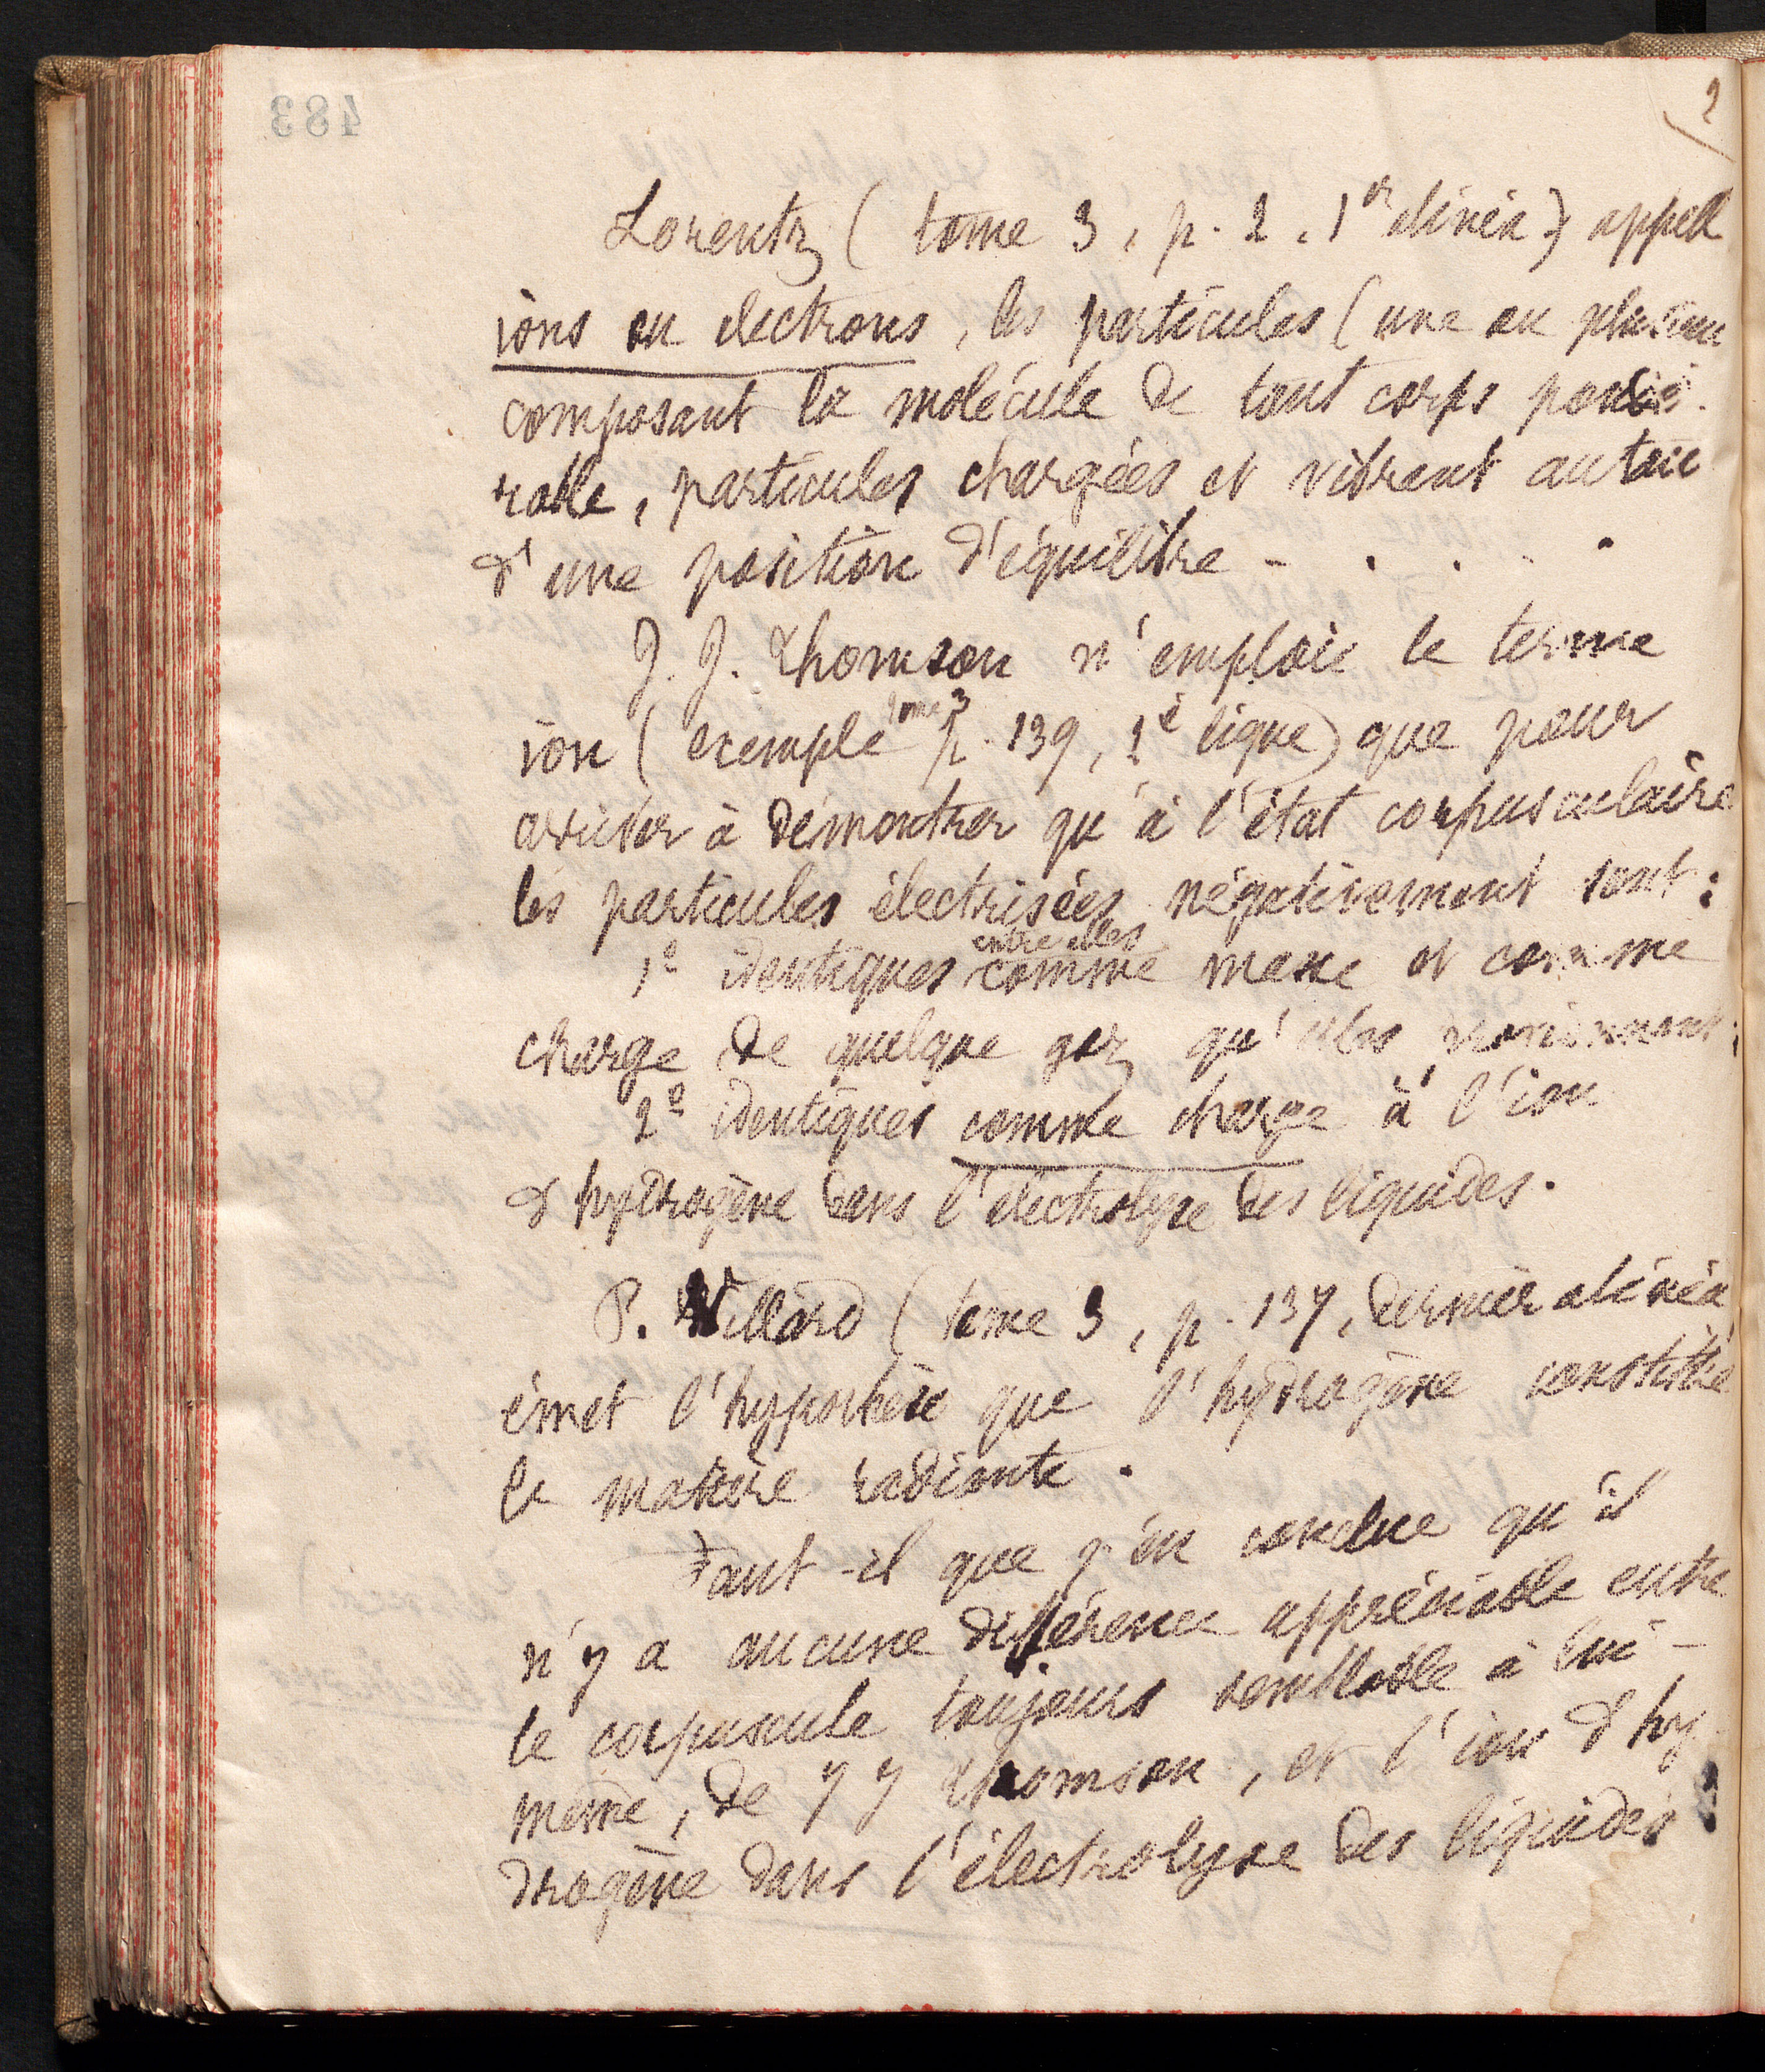 2
483
Lorentz ( tome 3, p. 2, 1er alinéa) appell
ions ou electrons, les particules (une ou plusieu
composant la molécule de tout corps pondé-
rable, particules chargées et vibrant autour
d'une position d'équilibre - . . . .
J. J. Thomson n'emploie le terme
ion (exemple tome 3 p. 139, 2è ligne) que pour
arriver à démontrer qu'à l'état corpusculaire
les particules électrisées négativement sont :
1º identiques entre elles comme masse et comme
charge de quelque gaz qu'elles proviennent;
2º identiques comme charge à l'ion
d'hydrogène dans l'électrolyse des liquides.
P. Villard ( tome 3, p. 137, dernier alinéa
émet l'hypothèse que l'hydrogène constitue
la matière radiante.
Faut-il que j'en conclue qu'il
n'y a aucune différence appréciable entre
le corpuscule toujours semblable à lui-
même, de J J Thomson, et l'ion d'hy-
drogène dans l'électrolyse des liquides